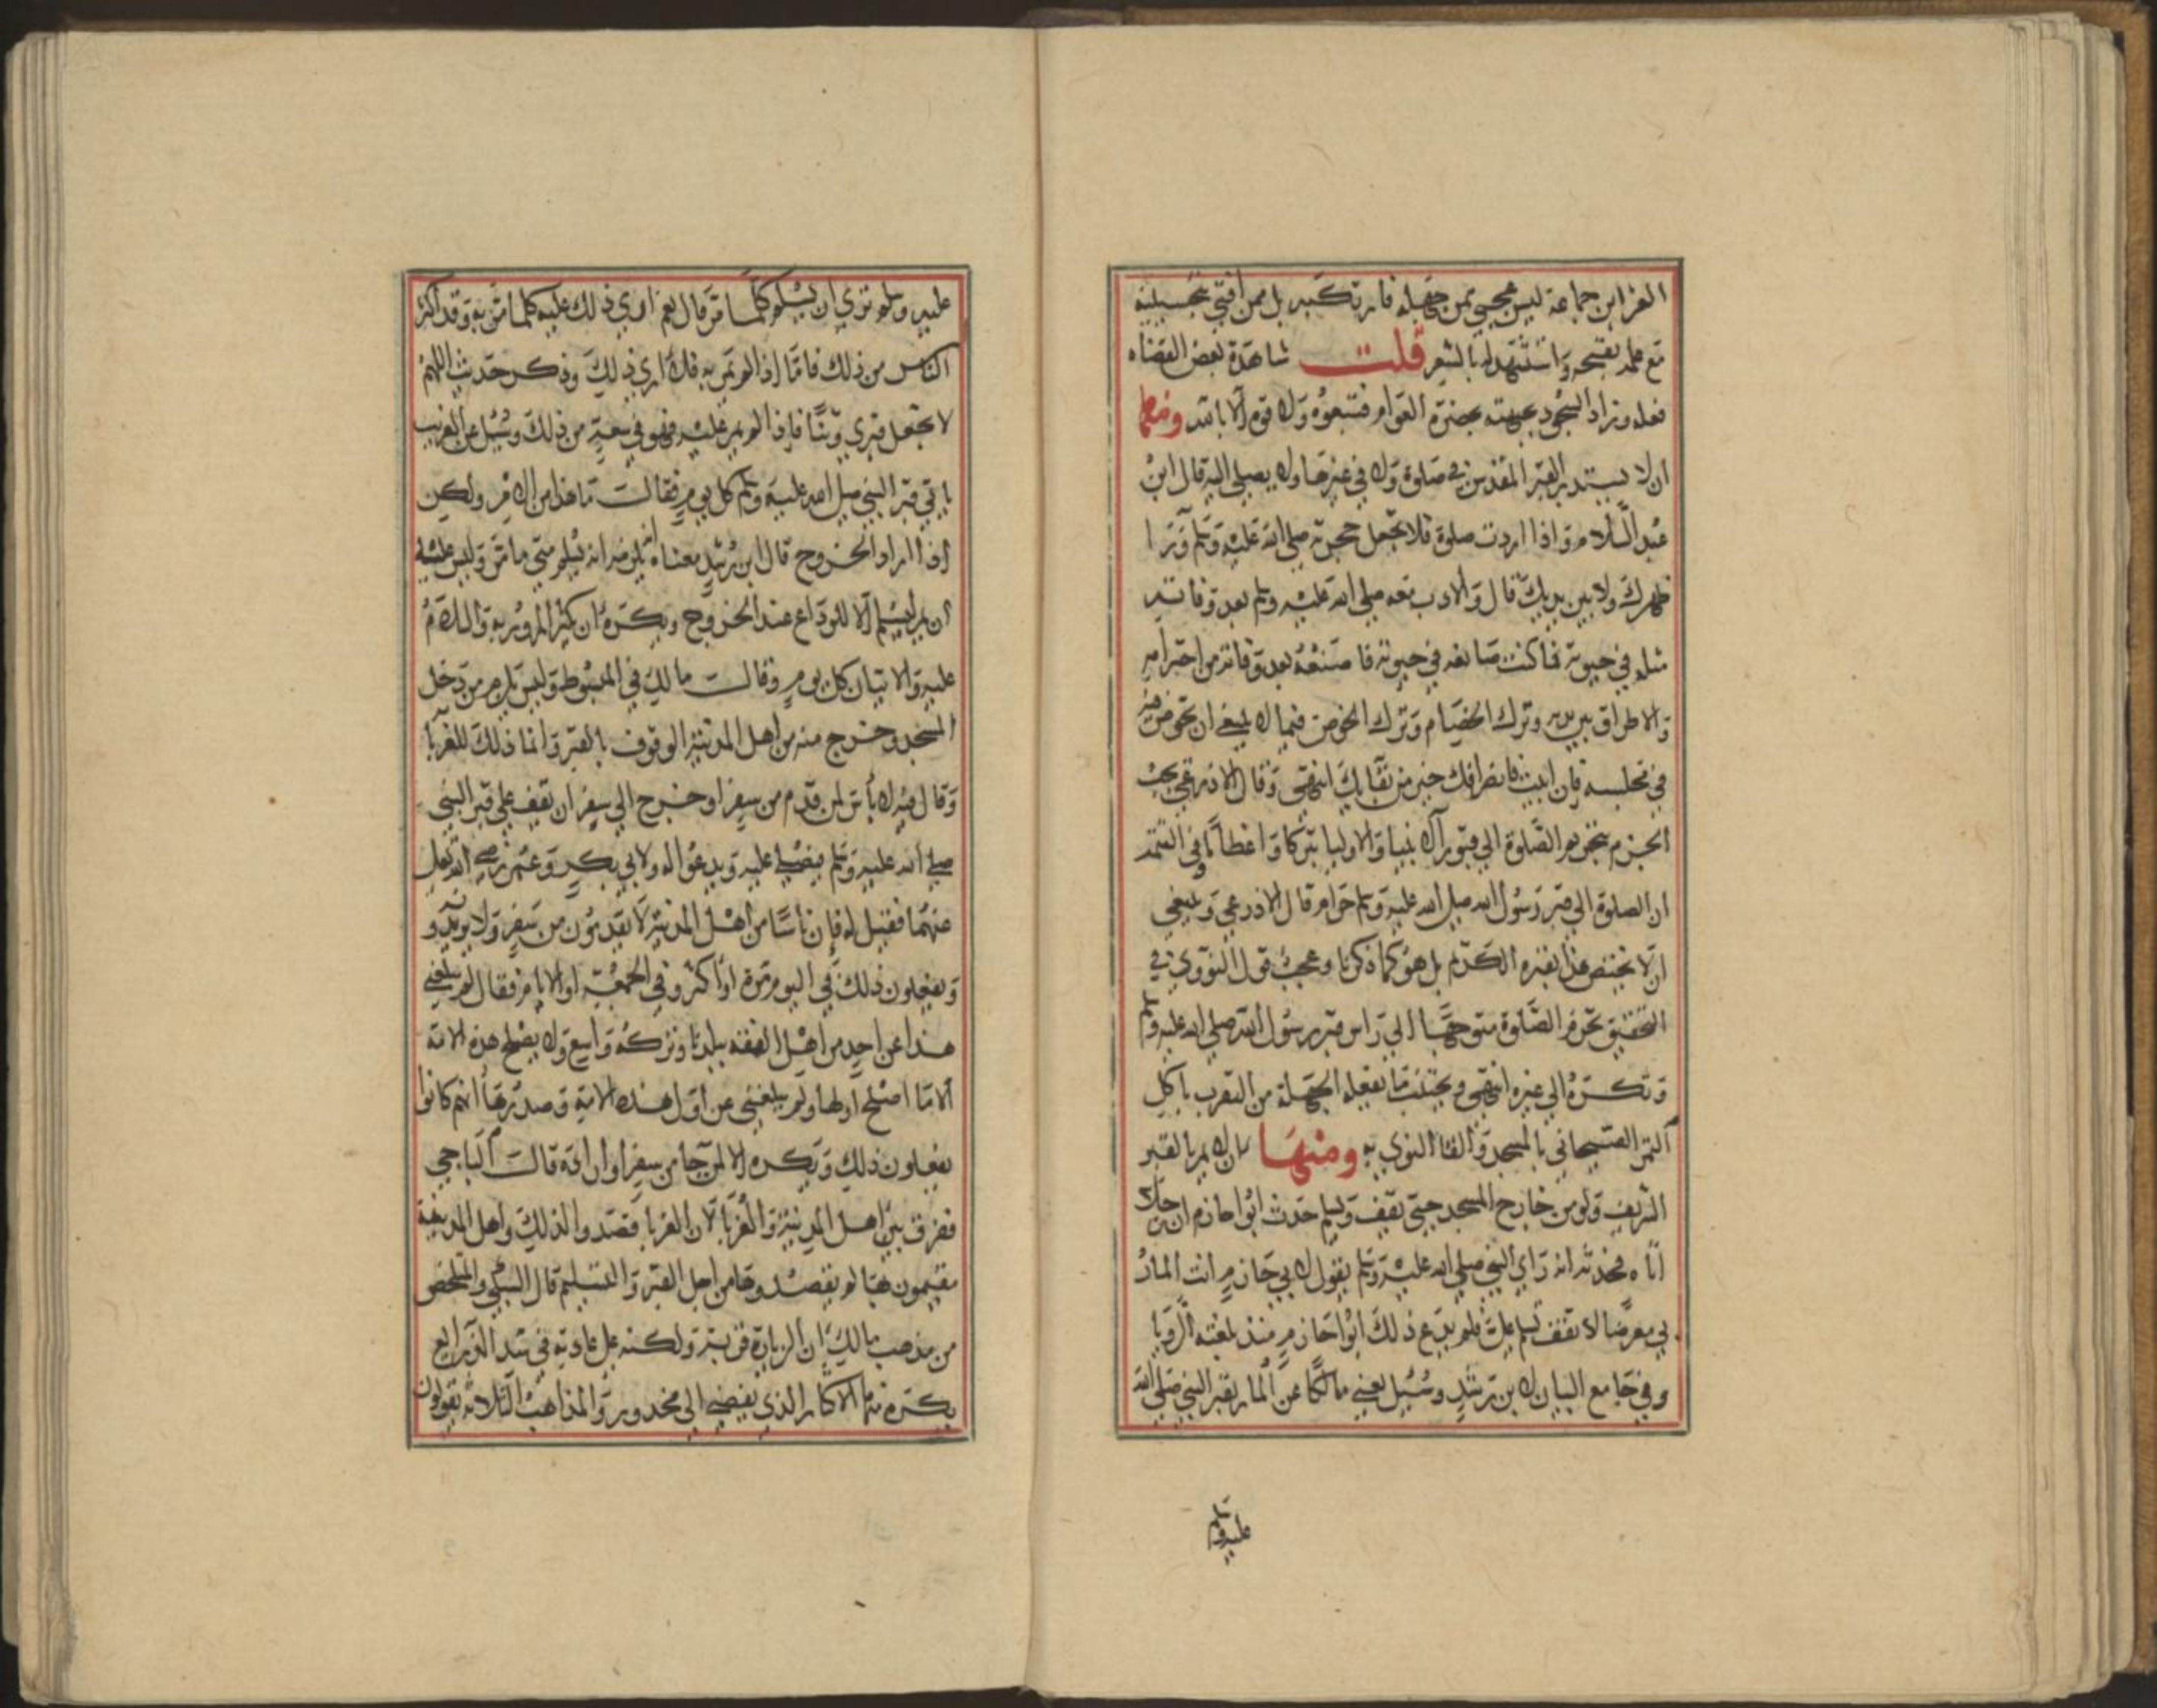 العز ابن جماعة ليس عجبي بمن جهله فارتكبه بل ممن افتي بتحسينه
مع علمه بقبحه واستشهد له بالشعر قلت شاهدة بعض القضاه
فعله وزاد السجود بجبهته بحضرة العوام فتبعوه ولا قوة الا بالله ومنها
ان لا يستدبر القبر المقدس في صلوة ولا في غيرها ولا يصلي اليه قال ابن
عبد السلام واذا اردت صلوة فلا تجعل حجرته صلي الله عليه وسلم ورا
ظهرك ولا بين يديك قال والادب معه صلي الله عليه وسلم بعد وفاته
مثله في حيوته فما كنت صانعه في حيوته فاصنعه بعد وفاته من احترامه
والاطراق بين يديه وترك الخصام وترك الخوض فيما لا ينبغي ان تخوض فيه
في مجلسه فان ابيت فانصرافك خير من بقايك انتهي وقال الاذرعي يجب
الجزم بتحريم الصلوة الي قبور الانبيا والاوليا تبركا واعظاما وفي التتمة
ان الصلوة الي قبر رسول الله صلي الله عليه وسلم حرام قال الاذرعي وينبغي
ان لا يختص هذا بقبره الكريم بل هو كما ذكرنا وعجبت قول النووي في
التحقيق تحرم الصلوة متوجها الي راس قبر رسول الله صلي الله عليه وسلم
وتكره الي غيره انتهي ويجتنب ما يفعله الجهلة من التقرب باكل
التمر الصيحاني بالمسجد والقا النوي به ومنها ان لا يمر بالقبر
الشريف ولو من خارج المسجد حتي يقف ويسلم حدث ابوا حازم ان رجلا
اتاه فحدثه انه راي النبي صلي الله عليه وسلم يقول لابي حازم انت المار
بي معرضا لا تقف تسلم علي فلم يدع ذلك ابوا حازم منذ بلغته الرويا
وفي جامع البيان لابن رشد وسئيل يعني مالكا عن المار بقبر النبي صلي الله
عليه وسلم
عليه وسلم تري ان يسلم كلما مر قال نعم اري ذلك عليه كلما مر به وقد اكثر
الناس من ذلك فاما اذا لم يمر به فلا اري ذلك وذكر حديث اللهم
لا تجعل قبري وثنا فاذا لم يمر عليه فهو في سعة من ذلك وسئيل عن الغريب
ياتي قبر النبي صلي الله عليه وسلم كل يوم فقالت ما هذا من الامر ولكن
اذا اراد الخروج قال ابن رشد معناه انه يلزمه ان يسلم متي ما مر وليس عليه
ان يمر ليسلم الا للوداع عند الخروج ويكره ان يكثر المرور به والسلام
عليه والاتيان كل يوم وقالت مالك في المبسوط وليس يلزم من دخل
المسجد وخرج منه من اهل المدينة الوقوف بالقبر وانما ذلك للغربا
وقال فيه لا باس لمن قدم من سفر او خرج الي سفر ان يقف علي قبر النبي
صلي الله عليه وسلم فيصلي عليه ويدعوا له ولابي بكر وعمر رضي الله تعالي
عنهما فقيل له فان ناسا من اهل المدينة لا يقدمون من سفر ولا يريدونه
ويفعلون ذلك في اليوم مرة او اكثر وفي الجمعة او الايام فقال لم يبلغني
هذا عن احد من اهل الفقه ببلدنا وتركه واسع ولا يصلح هذه الامة
الا ما اصلح اولها ولم يبلغني عن اول هذه الامة وصدرها انهم كانوا
يفعلون ذلك ويكره الا لمن جا من سفر او اراده قالت الباجي
ففرق بين اهل المدينة والغربا لان الغربا قصدوا لذلك واهل المدينة
مقيمون بها لم يقصدوها من اجل القبر والتسليم قال السبكي والملخص
من مذهب مالك ان الزيارة قربة ولكنه علي عادته في سد الذرايع
يكره منها الاكثار الذي يفضي الي محذور والمذاهب الثلاثة يقولون